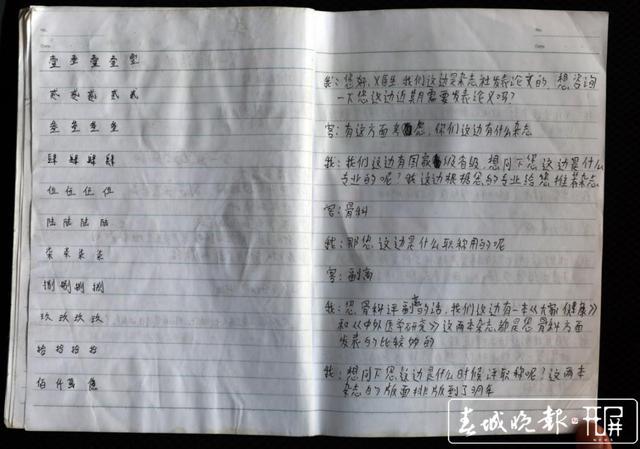 壹 壹 壹 壹 壹
贰 贰 贰 贰 贰
叁 叁 叁 叁
肆 肆 肆 肆
伍 伍 伍 伍
陆 陆 陆 陆
柒 柒 柒 柒
捌 捌 捌 捌
玖 玖 玖 玖
拾 拾 拾 拾
佰 仟 萬 億
我:您好,X医生 我们这边是杂志社发表论文的 想咨询
一下您这边近期需要发表论文吗?
客:有这方面考虑,你们这边有什么杂志
我:我们这边有国家级省级,想问下您这边是什么
专业的呢?我这边根据您的专业给您推荐杂志
客:骨科
我:那您这边是什么职称用的呢
客:副高
我:您骨科评副高的话,我们这边有一本《大家健康》
和《中外医学研究》这两本杂志都是您骨科方面
发表的比较多的
我:想问下您这边是什么时候评职称呢?这两本
杂志的版面排版到了3月年
春城晚报 开屏
NEWS